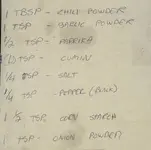 1 TBSP - CHILI POWDER
1 TSP - GARLIC POWDER
1/2 TSP - PAPRIKA
TSP - CUMIN
TSP - SALT
1/4 TSP - PEPPER (BLACK)
1 TSP CORN STARCH
TSP - ONION POWDER